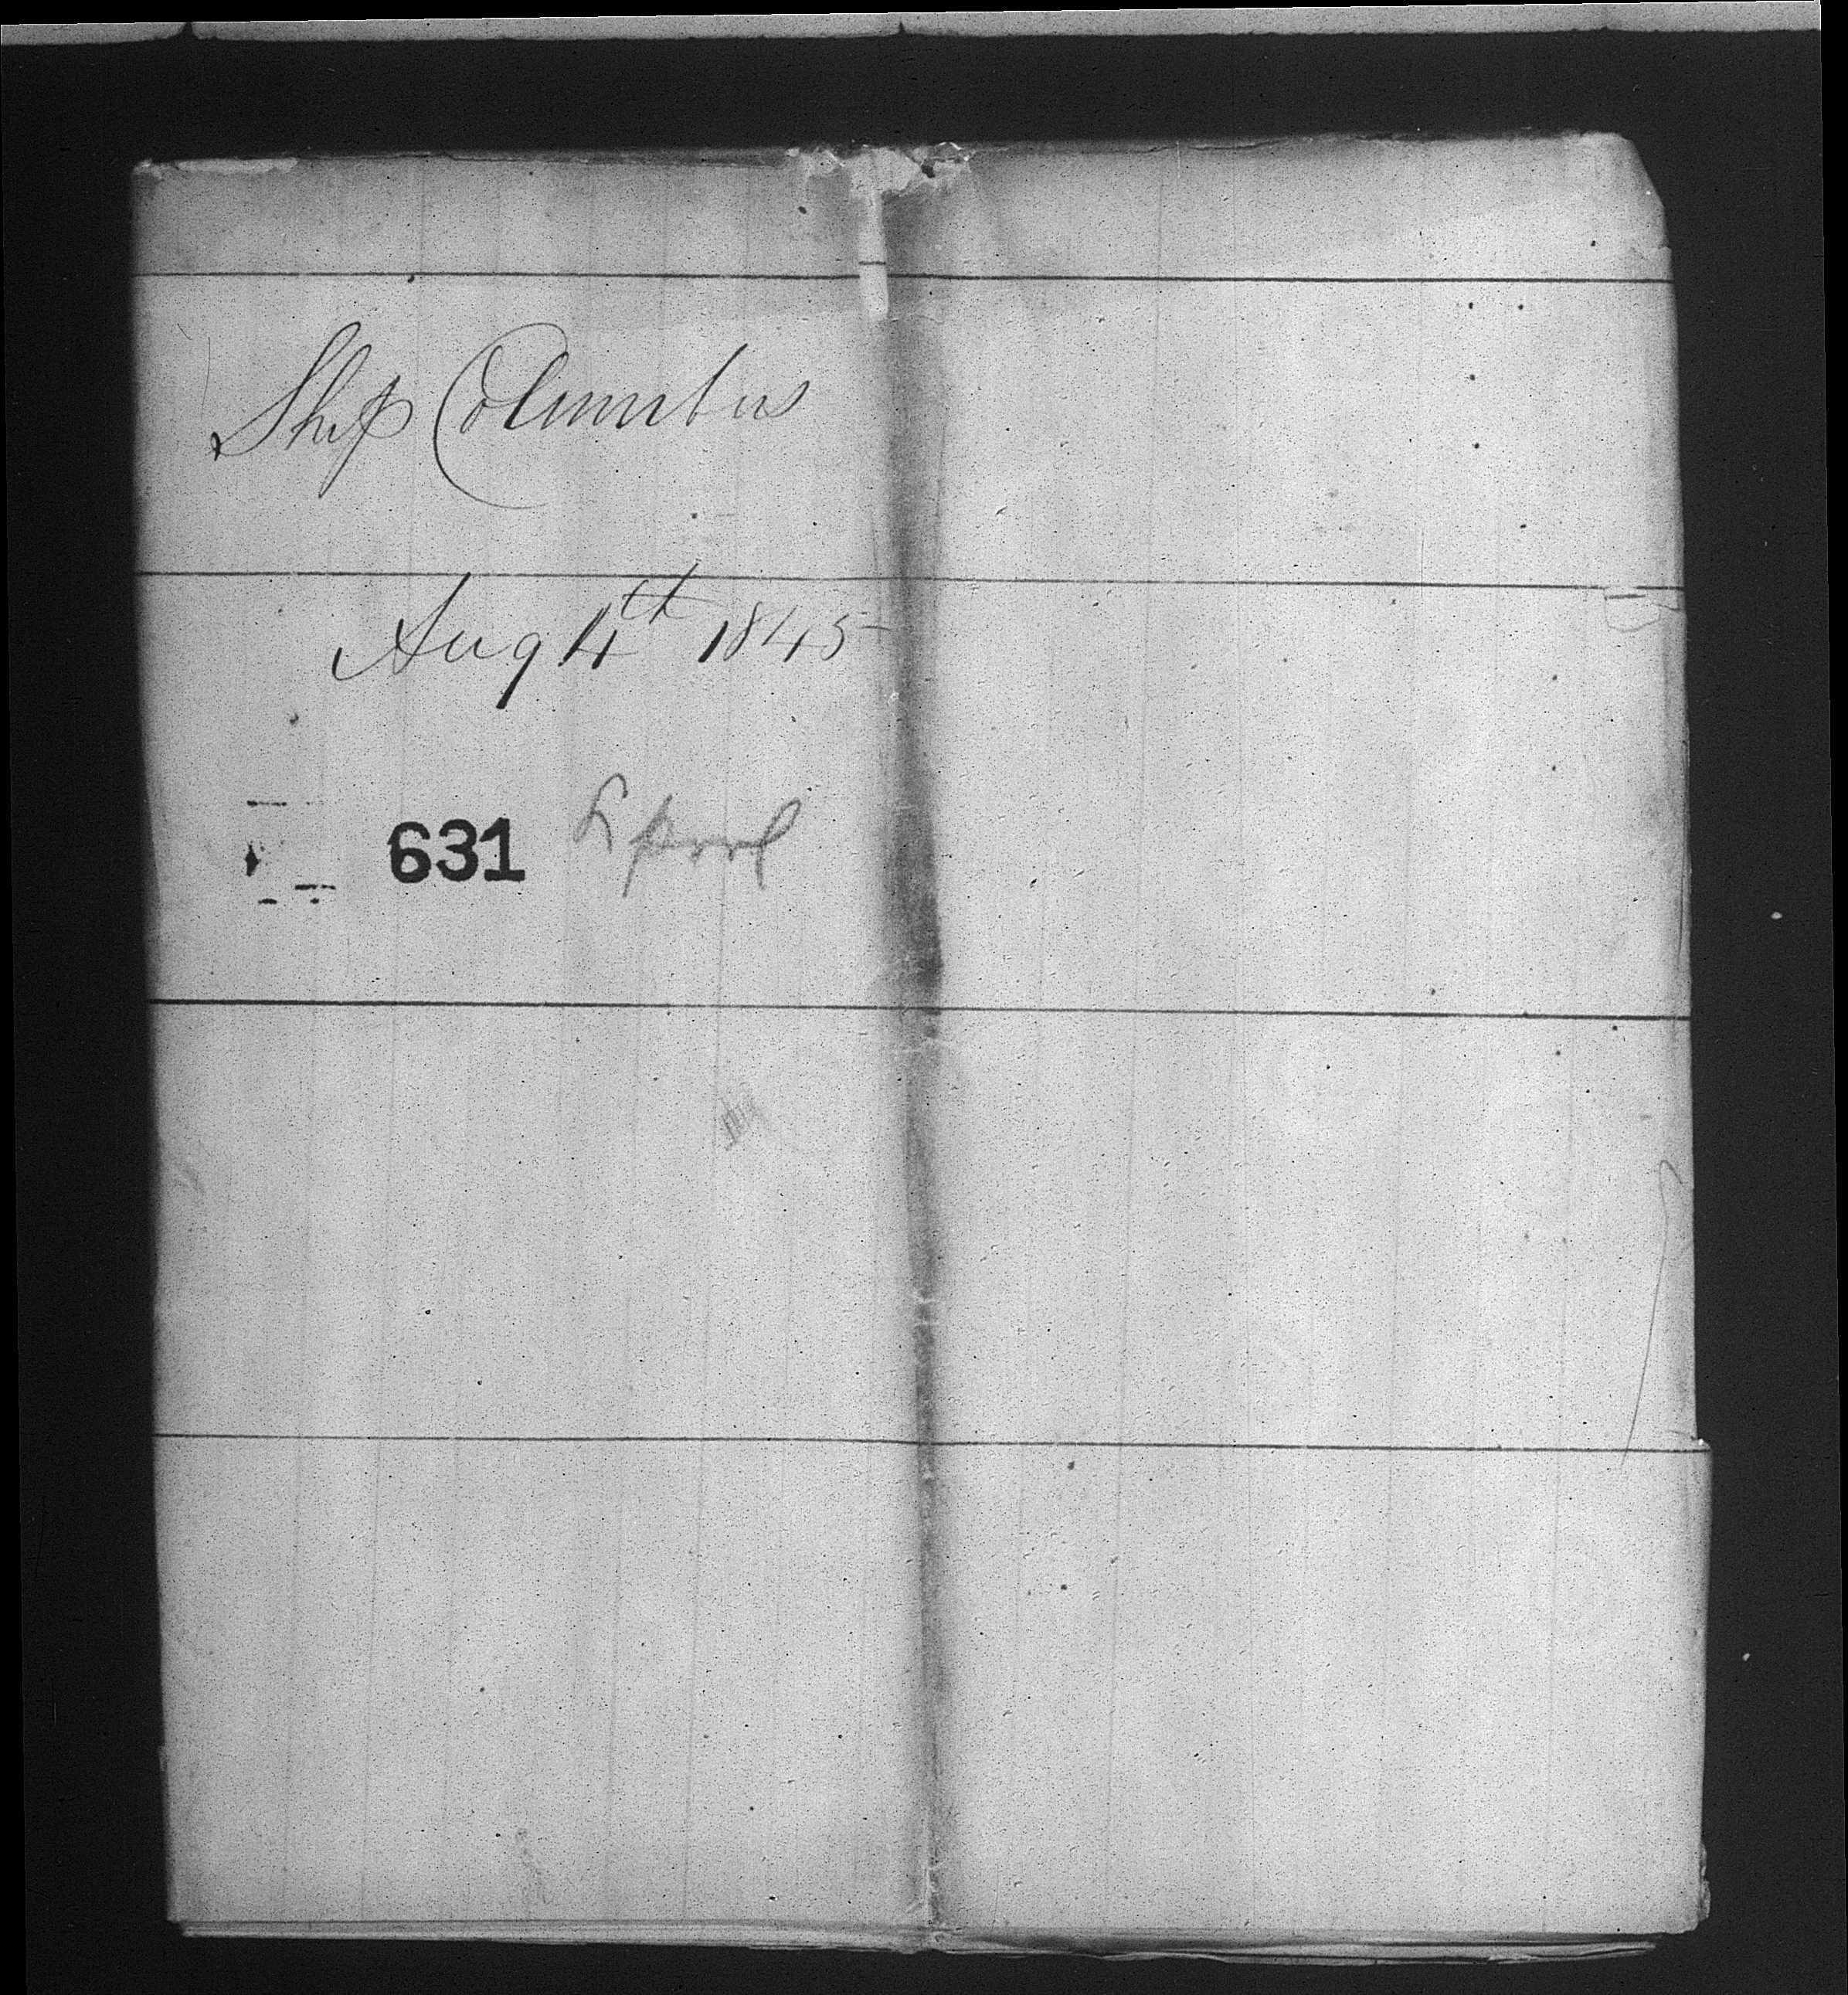 Ship Columbus
Aug 4th 1845
631 Lpool